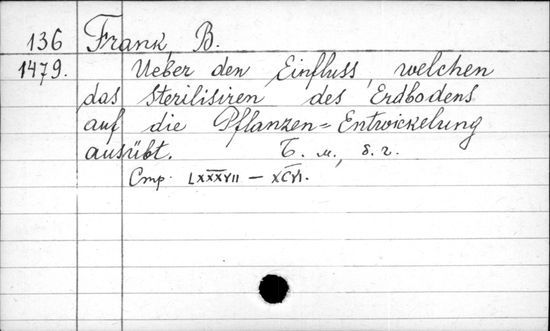 136 Frank, B.
1479. Ueber den Einfluss, welchen
das Sterilisiren des Erdbodens
auf die Pflanzen=Entwickelung
ausübt. Б. м., б. г.
Стр. LXXXVII — XCVI.